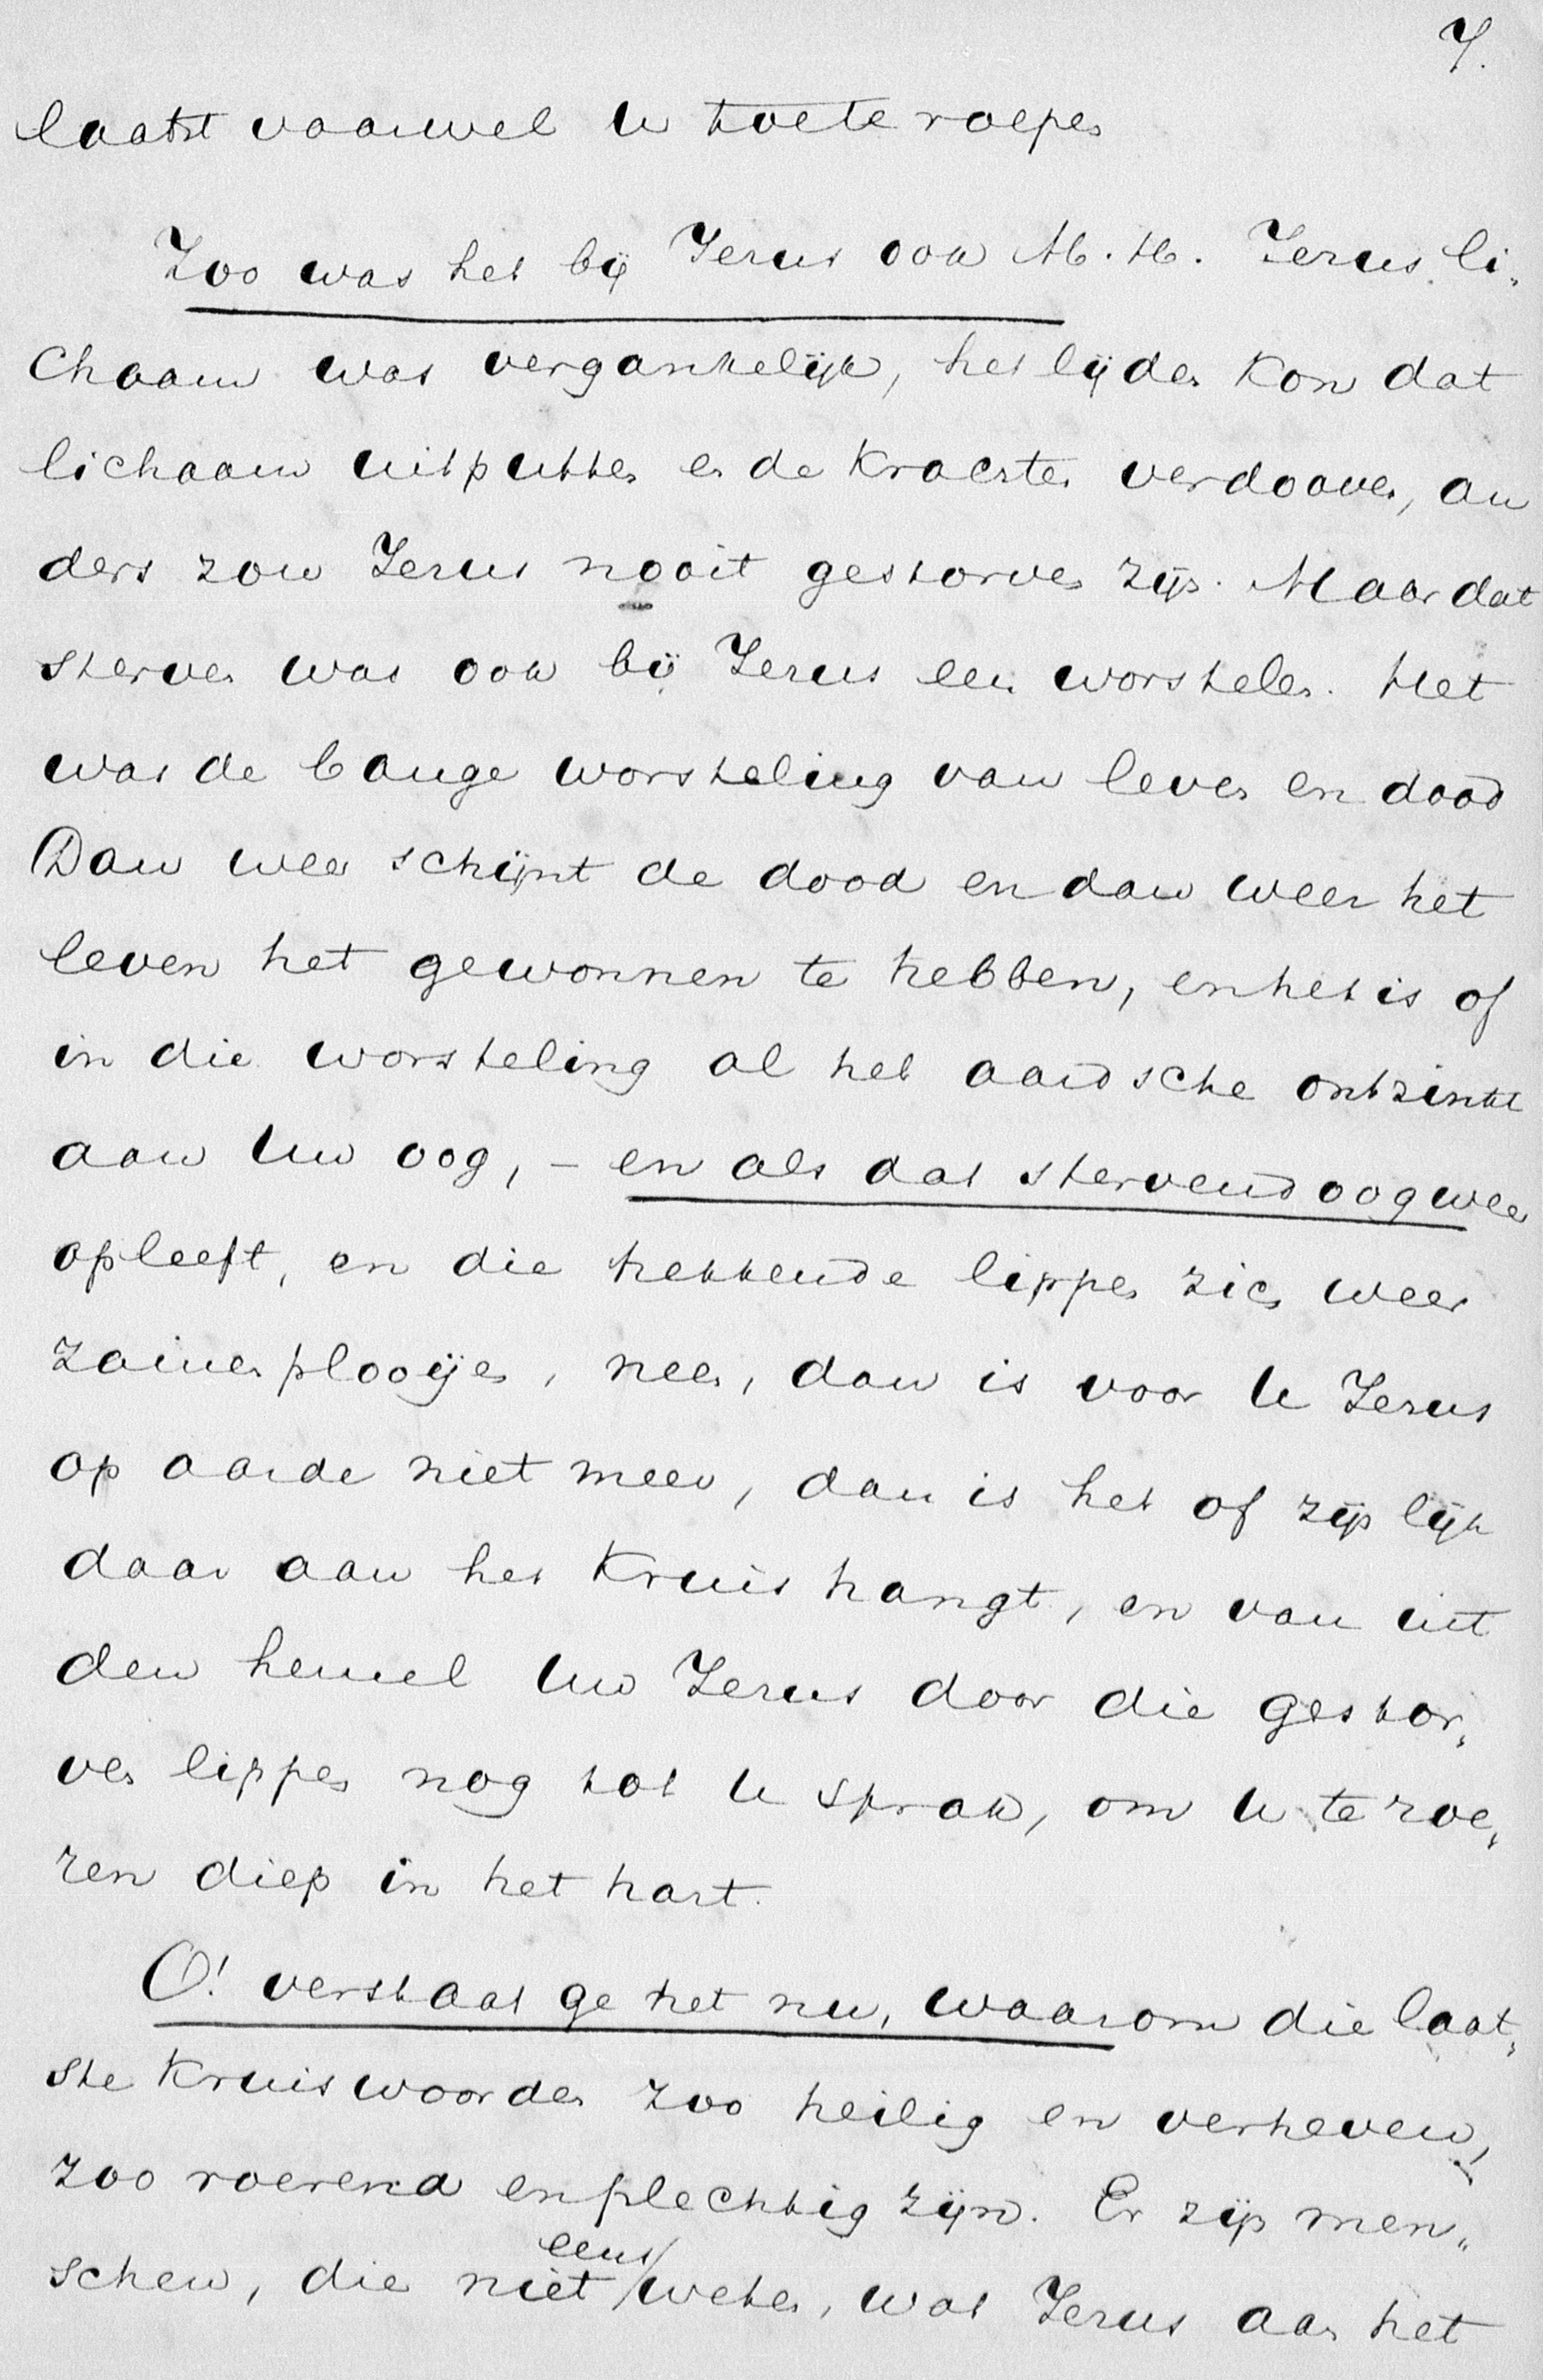 7.
laatst vaarwel U toeteroepen
Zoo was het bij Jezus ook M. H. Jezus li„
chaam was vergankelijk, het lijden kon dat
lichaam uitputten en de krachten verdooven, an
ders zou Jezus nooit gestorven zijn. Maar dat
sterven was ook bij Jezus een worstelen. Het
was de bange worsteling van leven en dood
Dan weer schijnt de dood en dan weer het
leven het gewonnen te hebben, en het is of
in die worsteling al het aardsche ontzinkt
aan Uw oog, – en als dat stervend oog weer
opleeft, en die trekkende lippen zich weer
zamenplooijen, neen, dan is voor U Jezus
op aarde niet meer, dan is het of zijn lijk
daar aan het Kruis hangt, en van uit
den hemel Uw Jezus door die gestor„
ven lippen nog tot U sprak, om U te roe„
ren diep in het hart.
O! verstaat ge het nu, waarom die laat„
ste Kruiswoorden zoo heilig en verheven,
zoo roerend en plechtig zijn. Er zijn men„
eens
schen, die niet / weten, wat Jezus aan het